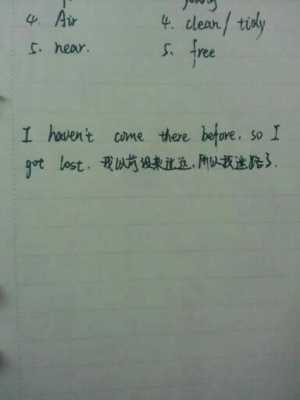 4. Air 4. clean / tidy
5. near. 5. free
I haven't come there before, so I
got lost. 我以前没来过这,所以我迷路了.